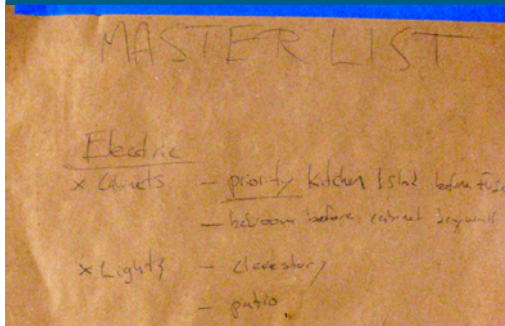 MASTER LIST
Electric
x Cabinets – priority Kitchen Island before
– bedroom before cabinet drywall
x Lights – clerestory
– patio